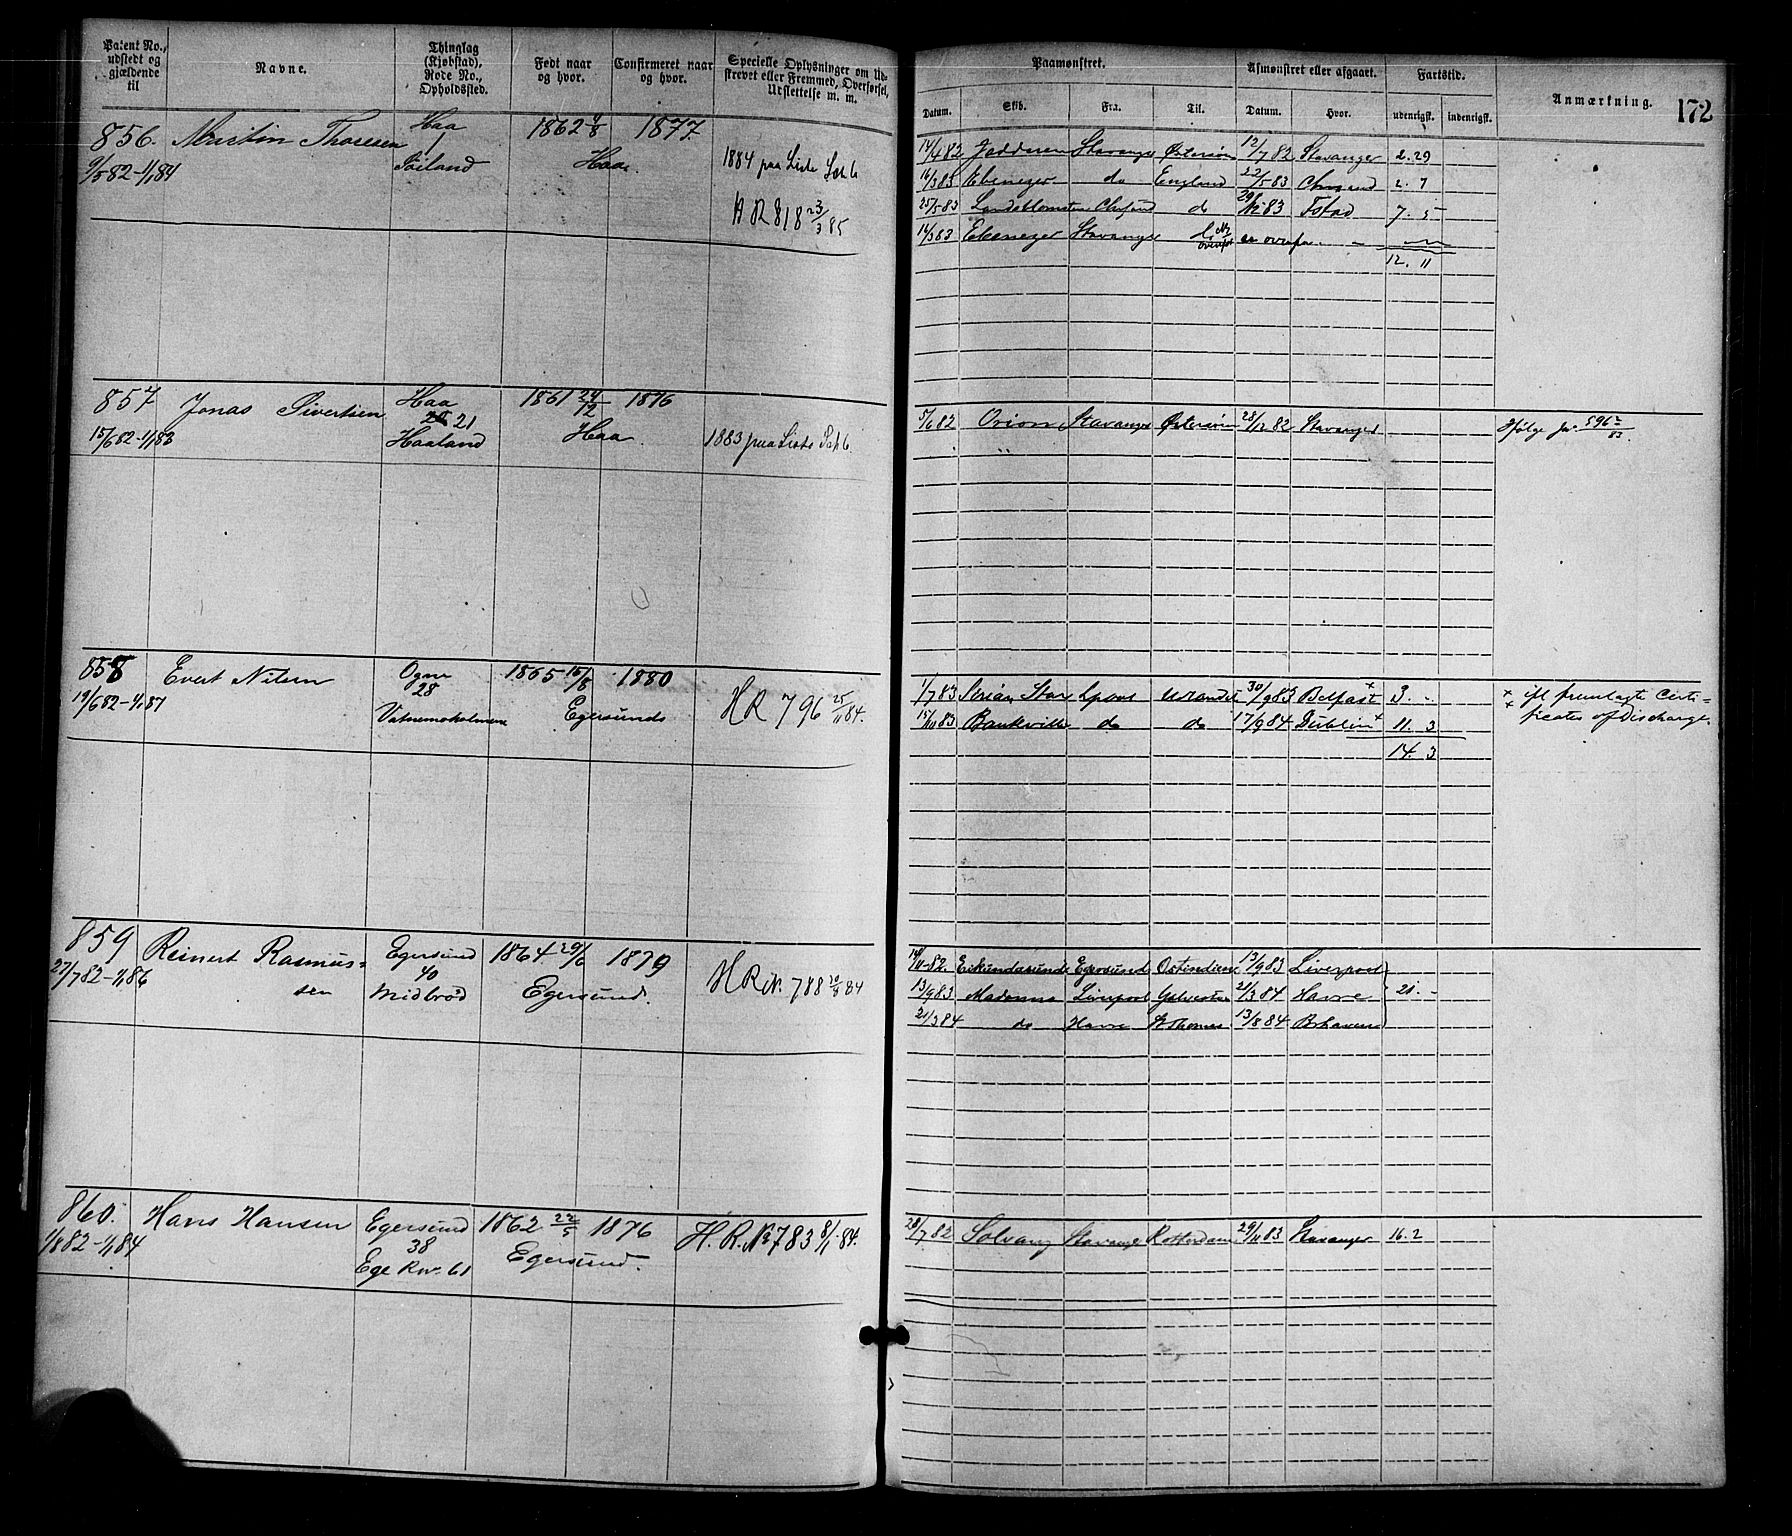 Patent No., udstedt og gjældende til
Navne.
Thinglag (Kjøbstad), Rode No., Opholdssted.
Født naar og hvor.
Confirmeret naar og hvor.
Specielle Oplysninger om Udskrevet eller Fremmed, Overførsel, Udslettelse m. m.
Paamønstret.
Afmønstret eller afgaaet.
Fartstid.
Anmærkning.
172
Datum. Skib. Fra. Til. Datum. Hvor. udenrigsk. indenrigsk.
856. Thorsen Haa 1862 4/8 1877
9/5 82-1/1 84 1 Haa.
1884 paa Liste
HR 818 23/3 85
14/4 82 Jædderen Stavanger Østersøen 12/7 82 Stavanger 2. 29
16/3 83 Ebenezer do England 22/5 83 2. 7
25/5 83 do 83 7. 5
14/3 83 Ebenezer Stavanger
12. 11
857 Jonas Sivertsen Haa 1861 24/12 1876
15/6 82-1/1 83 21 Haa.
Haaland 1883 paa Liste
5/6 82 Orion Stavanger Østersøen 28/12 82 Stavanger
858 Evert Nilsen Ogne 1865 15/8 1880
19/6 82-1/1 87 28 Egersunds
HR 796 25/11 84.
1/7 83 Star Lpool 30/9 83 Belfast+ 3. -
15/11 83 Bankville do do 17/9 84 Dublin+ 11. 3
14. 3
+ ifl fremlagte Certi-
+ ficates of Discharge
859 Reinert Rasmus- Egersund 1864 29/6 1879
27/7 82-1/1 86 sen 40 Egersund.
Midbrød HR No. 788 84
14/11-82. Eikundasund Egersund Ostindien 13/9 83 Liverpool
13/9 83 Madonna Liverpool Galveston 21/3 84 Havre 21. -
21/3 84 do Havre St Thomas 13/8 84 Brhaven
860. Hans Hansen Egersund 1862 22/5 1876 H. R. No 783 8/1 84.
1/8 82-1/1 84 38 Egersund.
28/7 82 Solvang Stavanger Rotterdam 29/11 83 Stavanger 16. 2